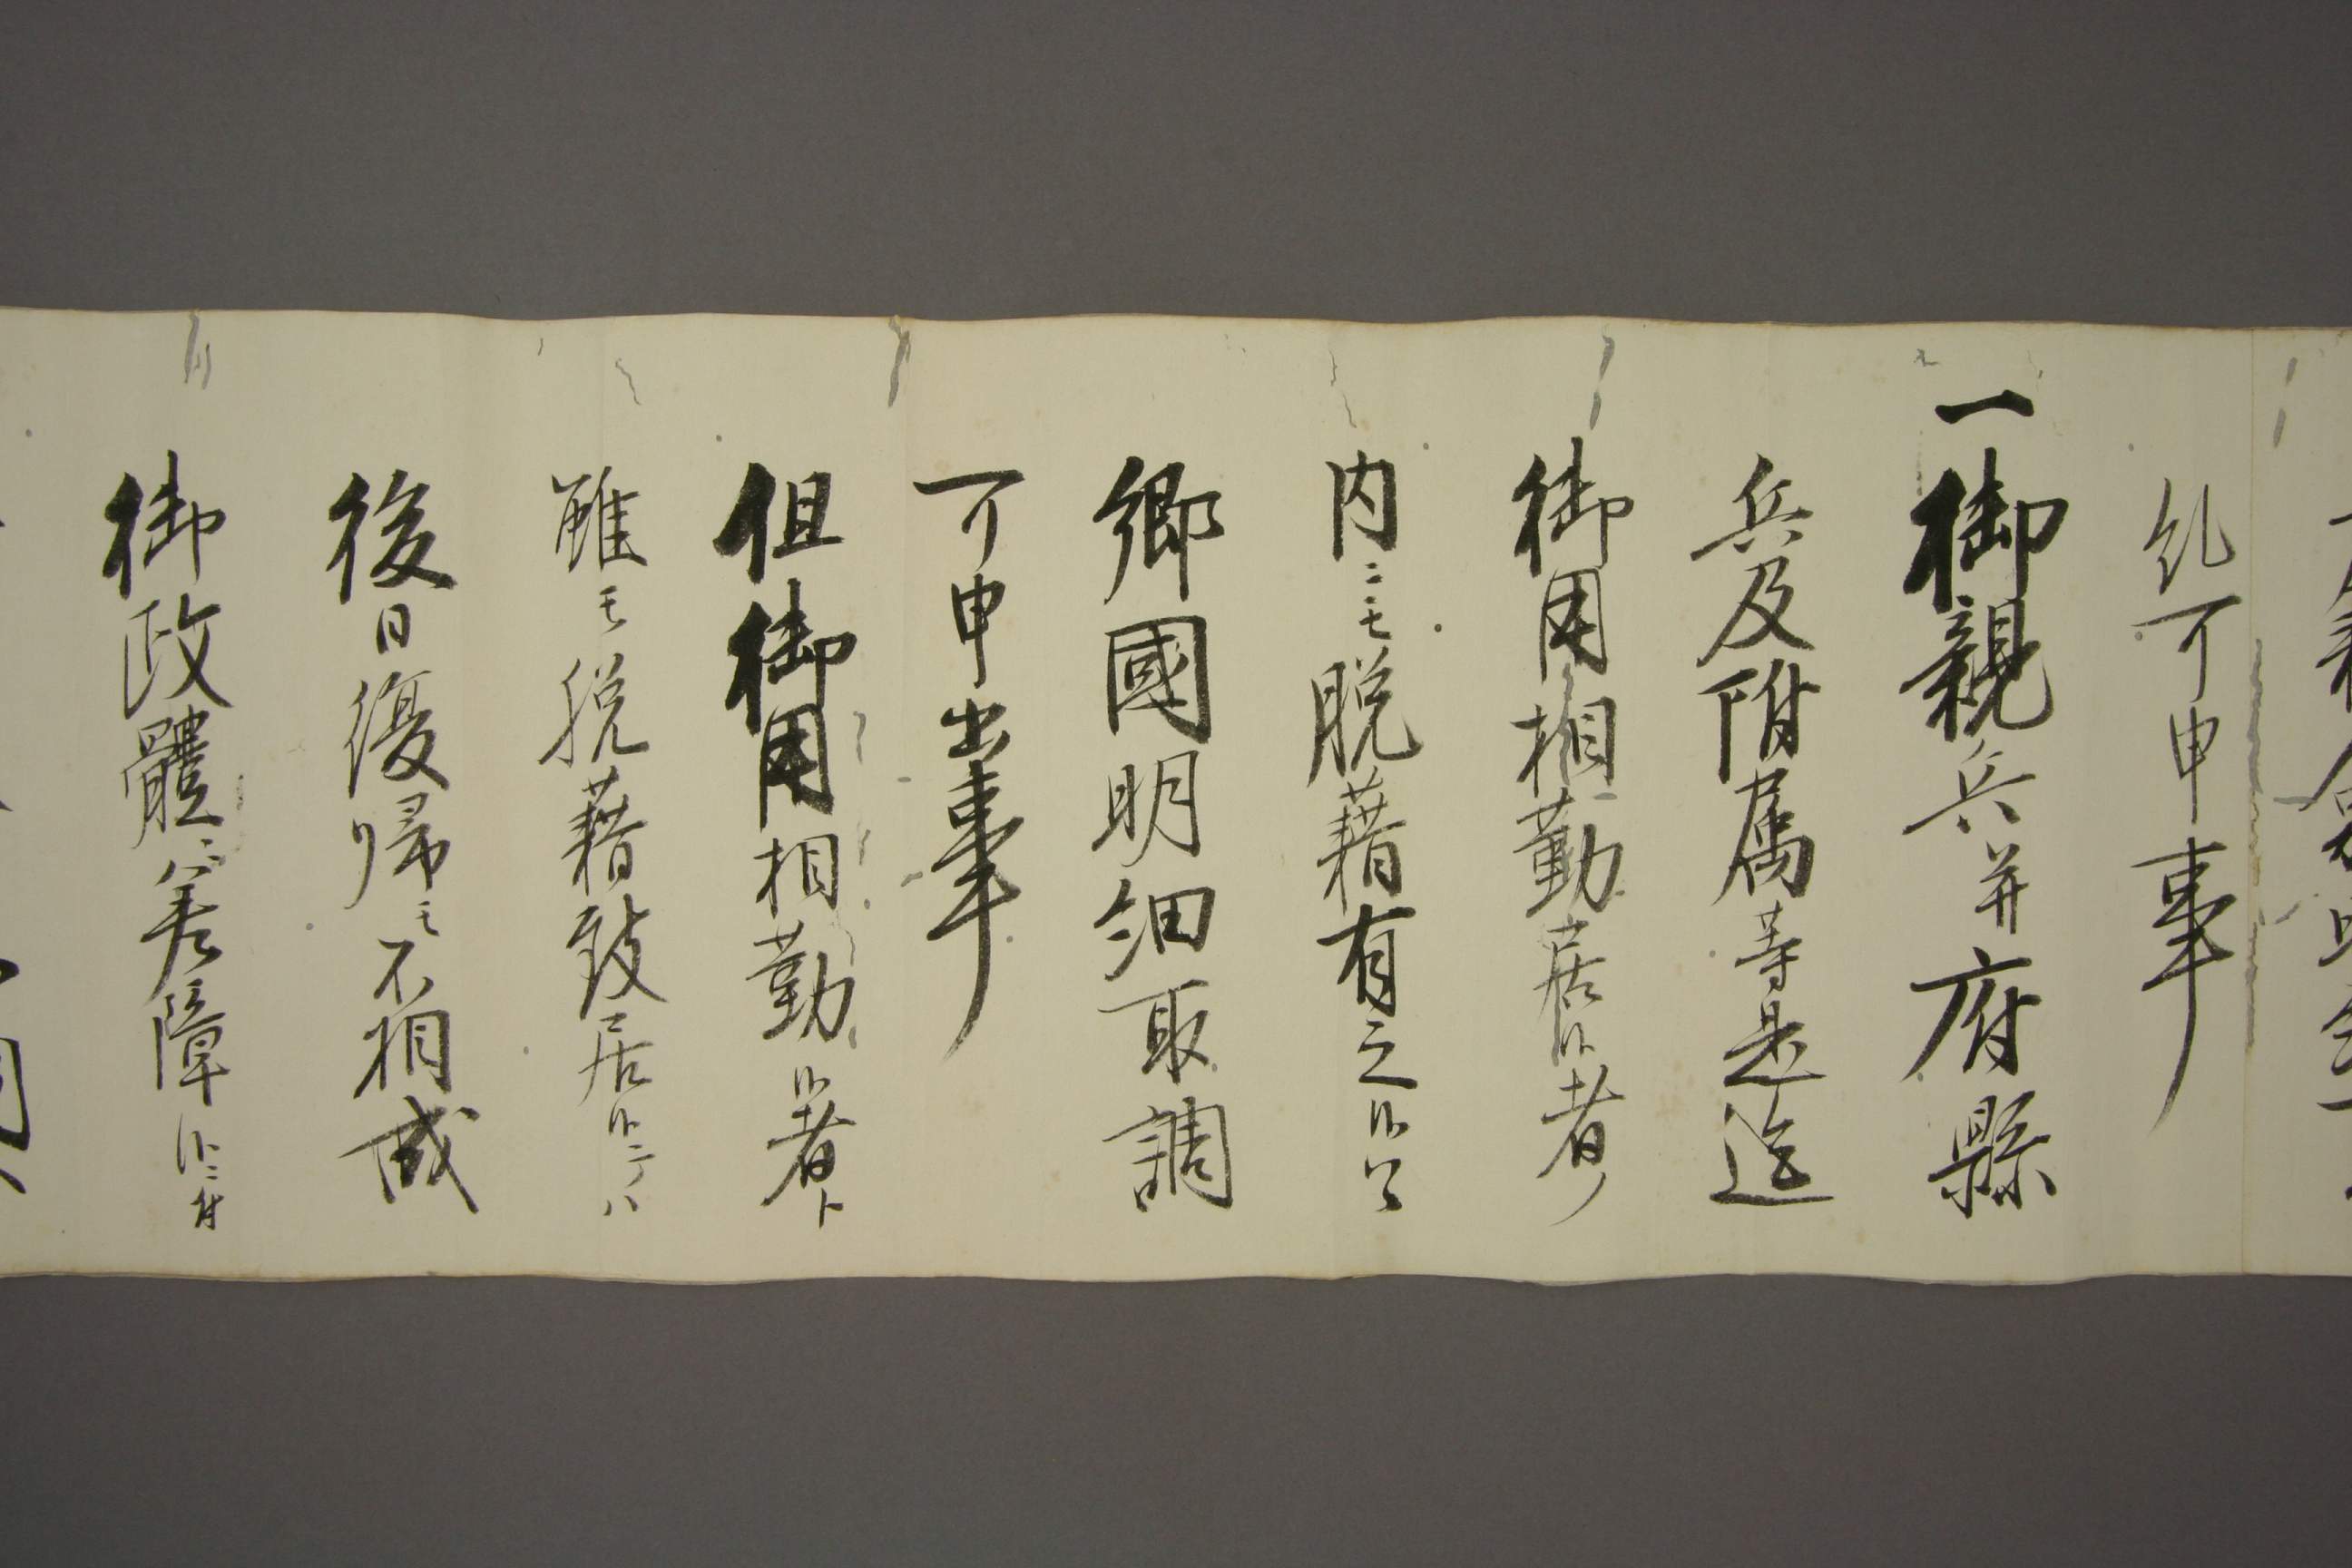 糺可申事
一御親兵并府縣
兵及附属等是迄
御用相勤居候者ノ
内ニモ脱藉有之候ハヽ
郷國明細取調
可申出事
但御用相勤候者ト
雖モ脱藉致居候テハ
後日復帰モ不相成
御政體ニ差障候ニ付